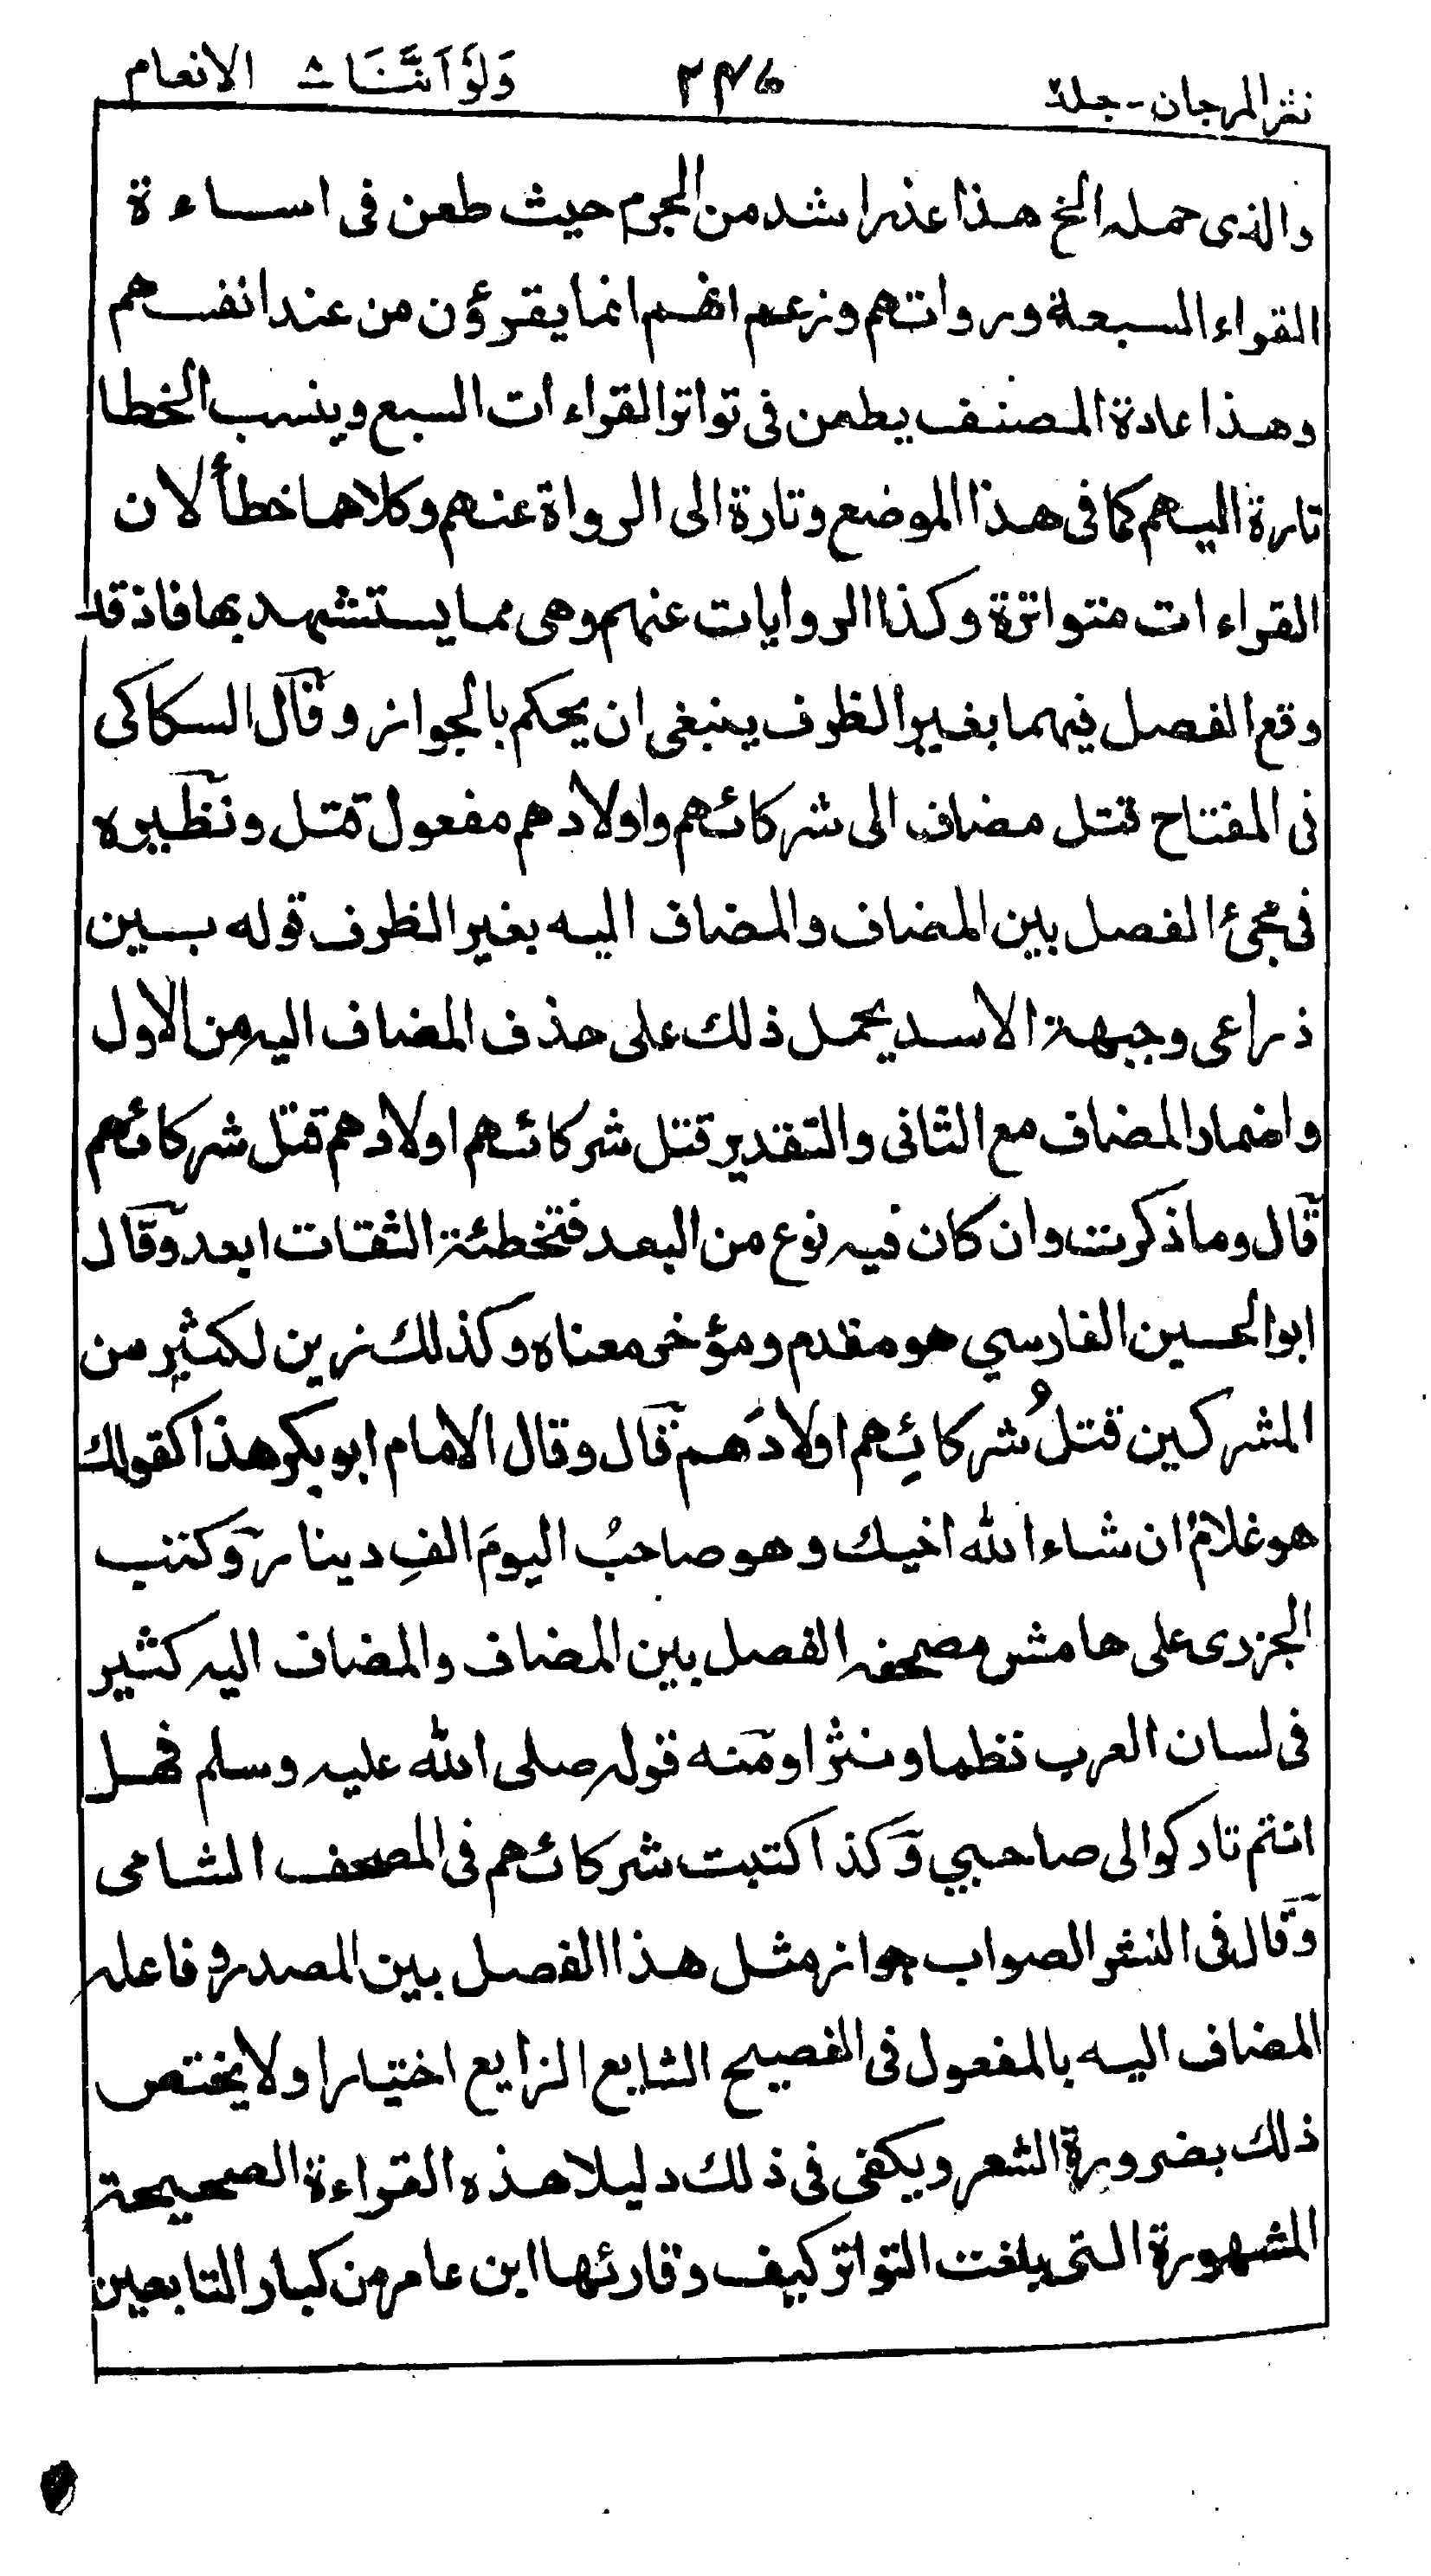 نثر المرجان - جلد ٢٤٦ وَلَوْ اَنَّنَا ٨ الانعام
والذى حمله الخ هذا عذر اشد من الجرم حيث طعن فى اساءة
القراء السبعة ورواتهم وزعم انهم انما يقرؤن من عند انفسهم
وهذا عادة المصنف يطعن فى تواتر القراءات السبع وينسب الخطا
تارة اليهم كما فى هذا الموضع وتارة الى الرواة عنهم وكلاهما خطأ لان
القراءات متواترة وكذا الروايات عنهم وهى مما يستشهد بها فاذ قد
وقع الفصل فيهما بغير الظرف ينبغى ان يحكم بالجواز وقال السكاكى
فى المفتاح قتل مضاف الى شركائهم واولادهم مفعول قتل ونظيره
فى مجئ الفصل بين المضاف والمضاف اليه بغير الظرف قوله بين
ذراعى وجبهة الاسد يحمل ذلك على حذف المضاف اليه من الاول
واضمار المضاف مع الثانى والتقدير قتل شركائهم اولادهم قتل شركائهم
قال وما ذكرت وان كان فيه نوع من البعد فتخطئة الثقات ابعد وقال
ابو الحسين الفارسي هو مقدم ومؤخر معناه وكذلك زين لكثير من
المشركين قتلُ شركائِهم اولادَهم قال وقال الامام ابو بكر هذا كقولك
هو غلامُ ان شاء الله اخيك وهو صاحبُ اليومَ الفِ دينار وكتب
الجزرى على هامش مصحفه الفصل بين المضاف والمضاف اليه كثير
فى لسان العرب نظما ونثرا ومنه قوله صلى الله عليه وسلم فهل
انتم تاركوا لى صاحبي وكذا كتبت شركائهم فى المصحف الشامى
وقال فى النشر الصواب جواز مثل هذا الفصل بين المصدر وفاعله
المضاف اليه بالمفعول فى الفصيح الشايع الزايع اختيارا ولا يختص
ذلك بضرورة الشعر ويكفى فى ذلك دليلا هذه القراءة الصحيحة
المشهورة التى بلغت التواتر كيف وقارئها ابن عامر من كبار التابعين